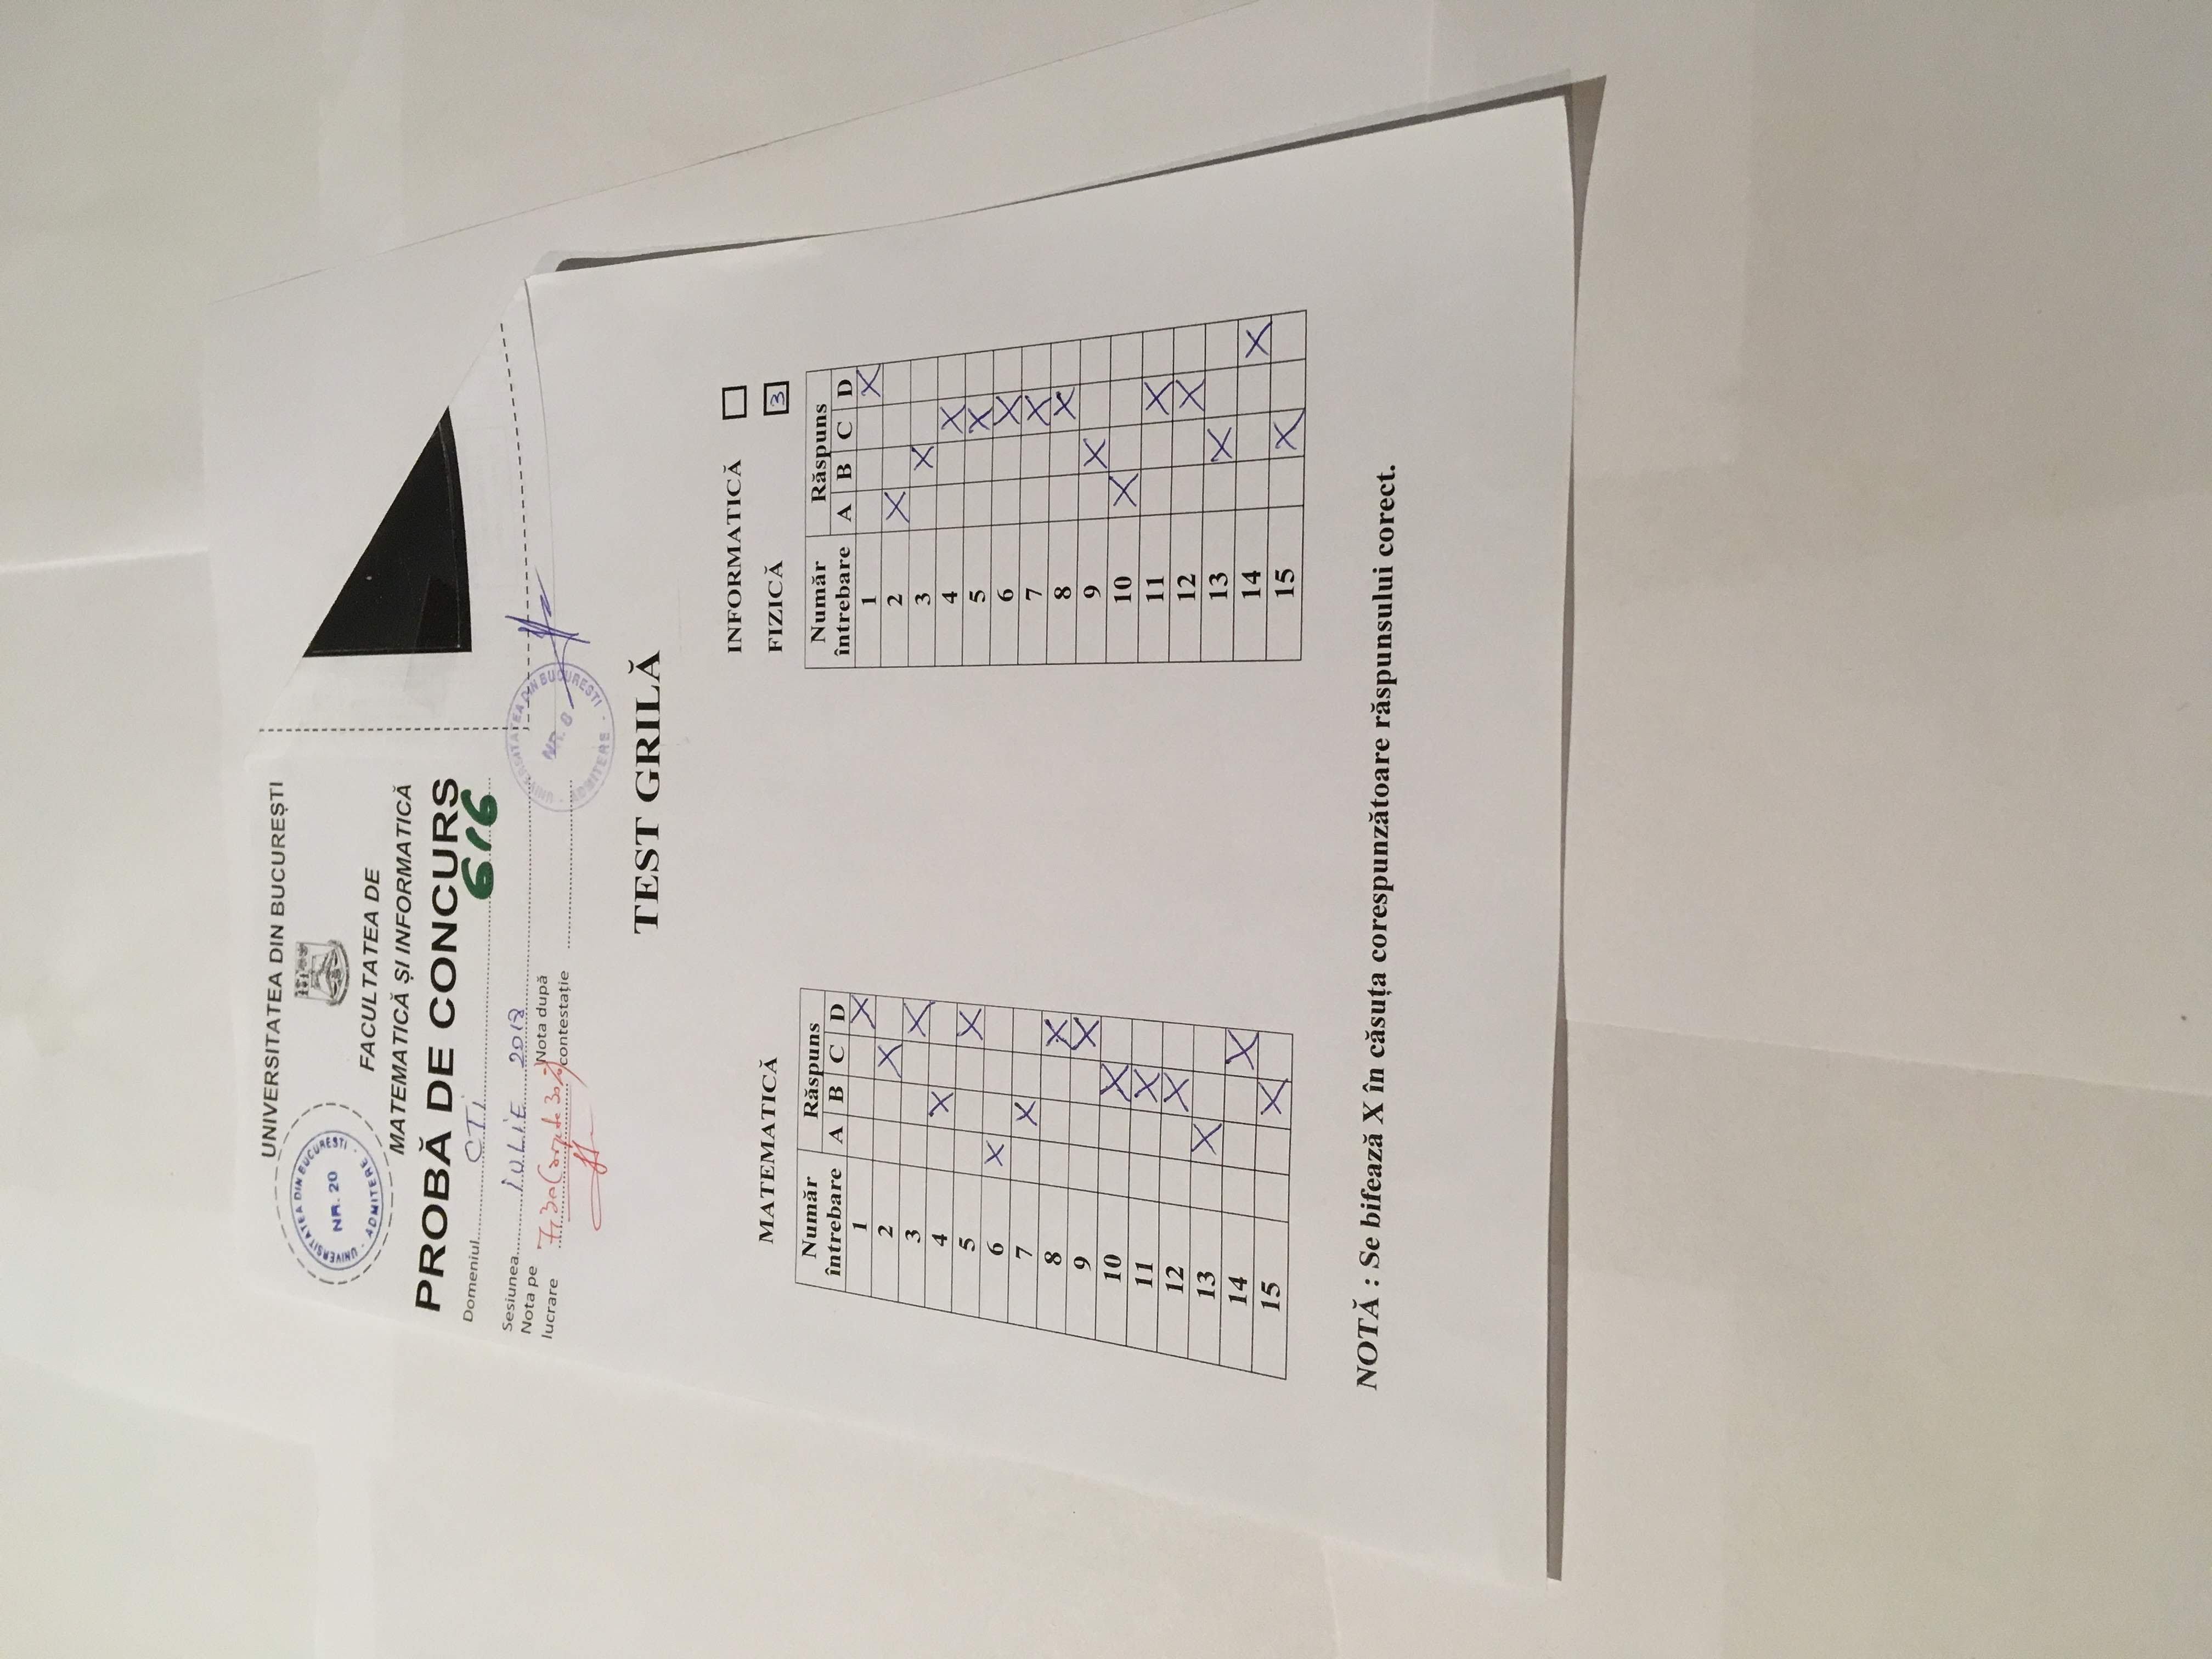 UNIVERSITATEA DIN BUCUREȘTI
UNIVERSITATEA DIN BUCUREȘTI
NR. 20
ADMITERE
FACULTATEA DE
MATEMATICĂ ȘI INFORMATICĂ
PROBĂ DE CONCURS
Domeniul CTI 616
Sesiunea IULIE 2018
Nota pe lucrare 7,30
Nota după contestație
UNIVERSITATEA DIN BUCUREȘTI
NR. 8
ADMITERE
TEST GRILĂ
MATEMATICĂ
Număr întrebare Răspuns
A B C D
1 X
2 X
3 X
4 X
5 X
6 X
7 X
8 X
9 X
10 X
11 X
12 X
13 X
14 X
15 X
INFORMATICĂ
FIZICĂ 3
Număr întrebare Răspuns
A B C D
1 X
2 X
3 X
4 X
5 X
6 X
7 X
8 X
9 X
10 X
11 X
12 X
13 X
14 X
15 X
NOTĂ : Se bifează X în căsuța corespunzătoare răspunsului corect.